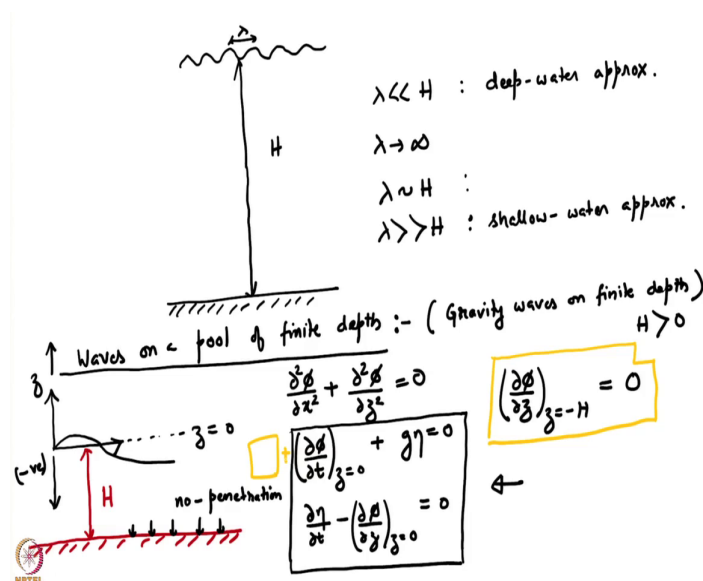 λ
H
λ<<H : deep-water approx.
λ→∞
λ~H :
λ>>H : shallow-water approx.
Waves on a pool of finite depth :- (Gravity waves on finite depth)
H>0
∂²φ/∂x² + ∂²φ/∂z² = 0
(∂φ/∂z)_{z=-H} = 0
z
z=0
(-ve)
H
no-penetration
+ (∂φ/∂t)_{z=0} + gη=0
∂η/∂t - (∂φ/∂z)_{z=0} = 0
←
NPTEL